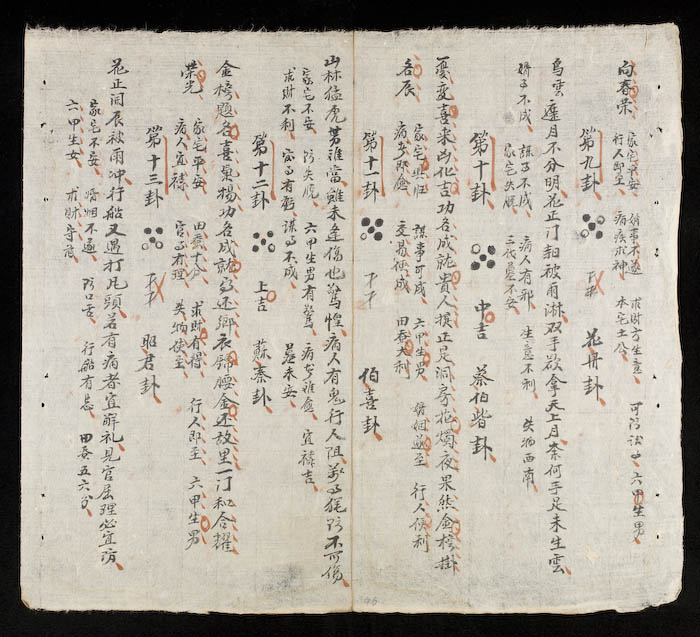 向春荣
家宅平安 謀事不遂 求財方生意 可防訟 六甲生男
行人即至 病疾求神 本宅土公
第九卦 下下 花冊卦
烏雲遮月不分明花正開朝被雨淋双手欲拿天上月奈何手足未生雲
婚不成 謀不成 病人有邪 生意不利 失物西南
家宅失脫 三代墓不安
第十卦 中吉 蔡伯皆卦
憂变喜来凶化吉功名成就貴人提正是洞房花燭夜果然金榜掛
名辰
家宅興旺 謀事可成 六甲生男 婚姻 至 行人伏利
病者际愈 交易便成 田蚕大利
第十一卦 下下 伯喜卦
山林猛虎勇誰當雖未逢傷也驚惶病人有鬼行人阻萬耗防不可傷
家宅不安 防失脫 六甲生男有驚 病者难愈 宜禱吉
求財不利 官有虧 謀不成 墓未安
第十二卦 上吉 蘇秦卦
金榜題名喜氣揚功名成就 还鄉衣錦腰金还故里一门和合耀
榮光
家宅平安 田蚕十分 求財有得 行人即至 六甲生男
病人宜禱 官有理 失物使至
第十三卦 下下 昭君卦
花正開辰被雨冲行船又遇打凡頭若有病者宜解礼見官屈理必宜防
家宅不安 婚姻不遂 防口舌 行船有忌 田蚕五六分
六甲生女 求財守